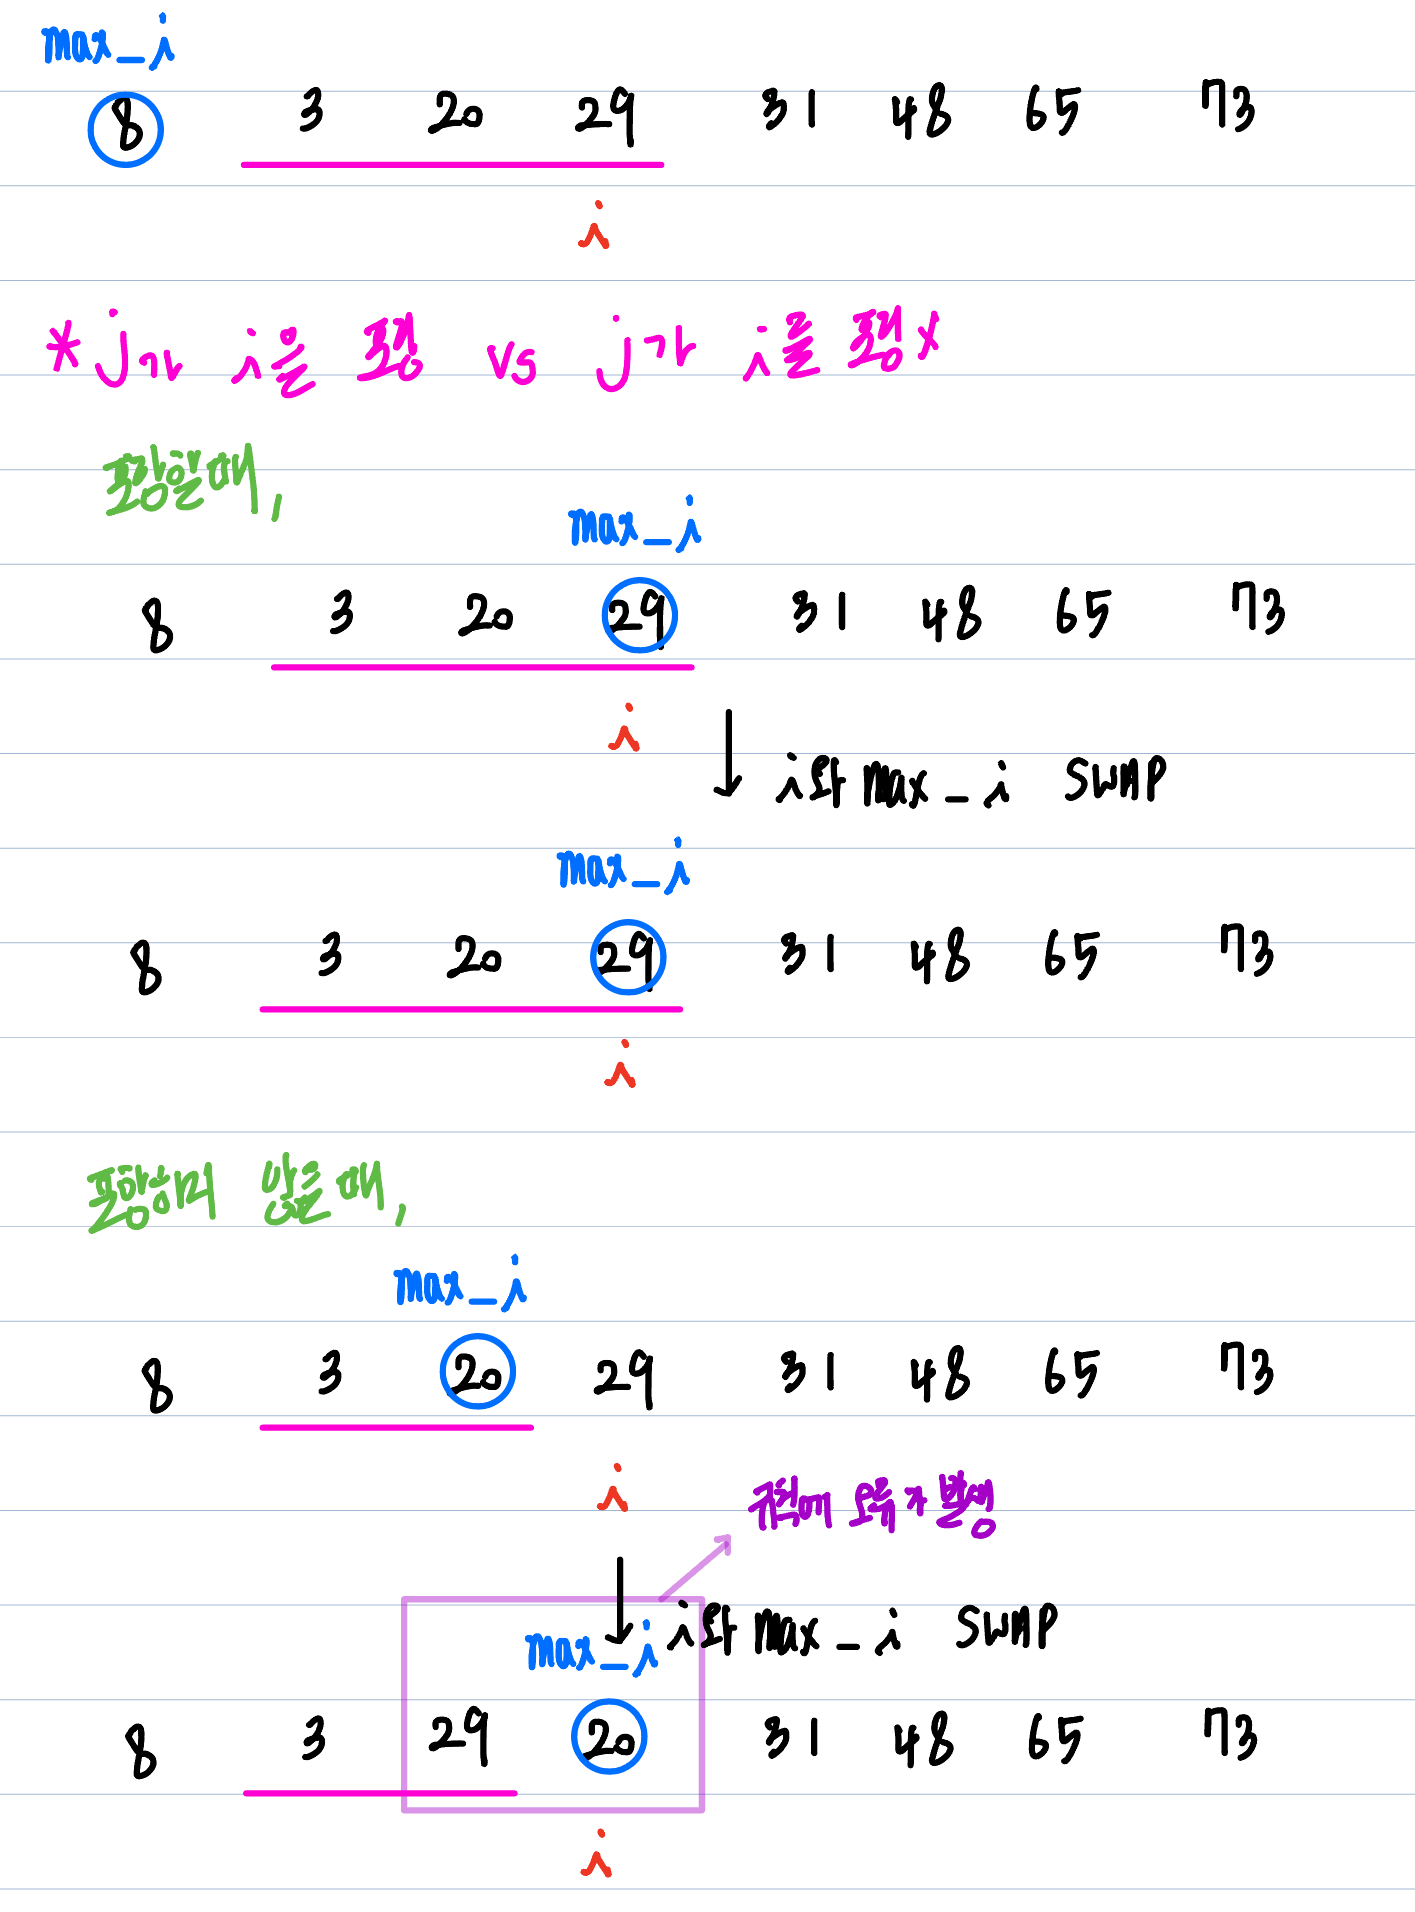 max_i
8 3 20 29 31 48 65 73
i
*j가 i을 포함 vs j가 i를 포함x
포함할때,
max_i
8 3 20 29 31 48 65 73
i
i와 max_i SWAP
max_i
8 3 20 29 31 48 65 73
i
포함하지 않을때,
max_i
8 3 20 29 31 48 65 73
i
규칙에 오류가 발생
i와 max_i SWAP
max_i
8 3 29 20 31 48 65 73
i